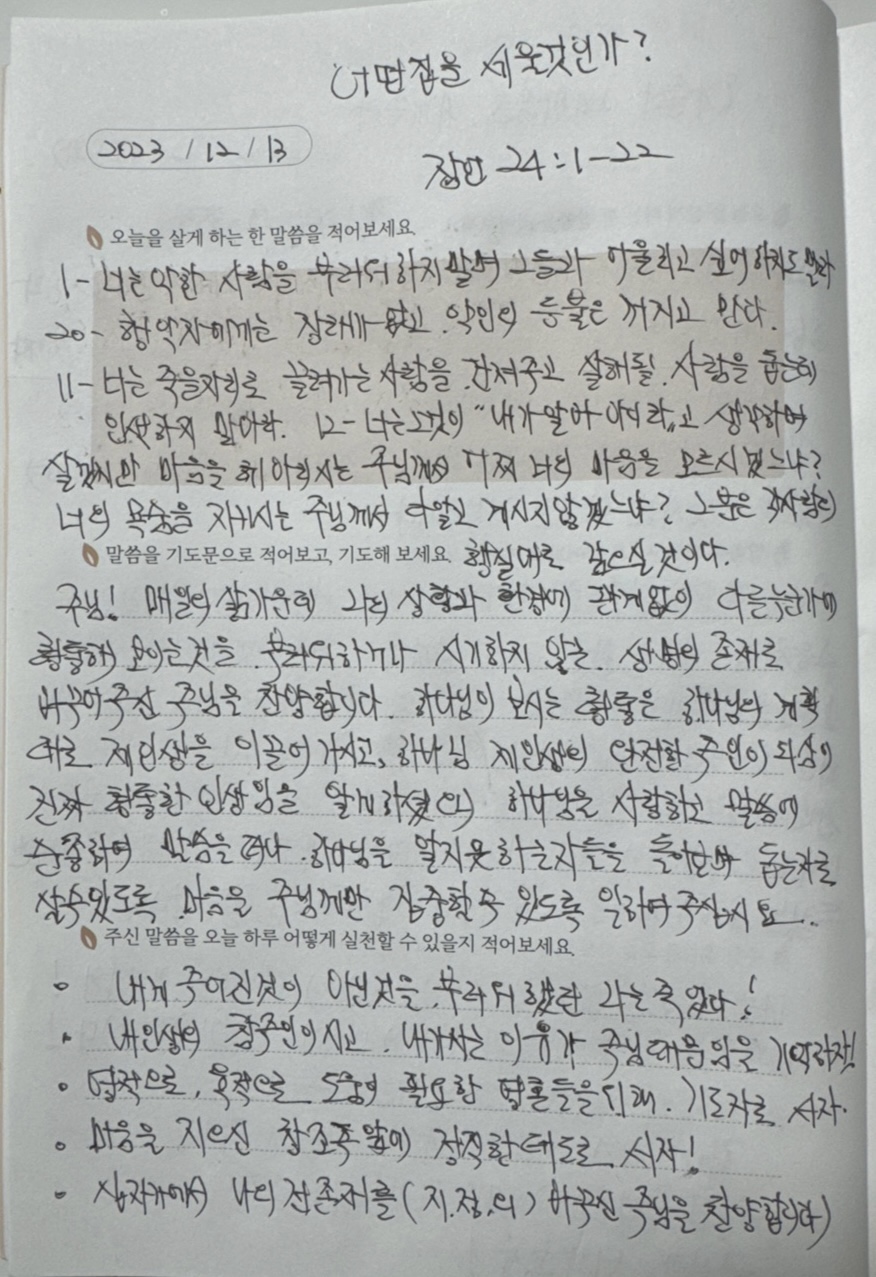 어떤집을 세울것인가?
2023 / 12 / 13
잠언 24:1-22
오늘을 살게 하는 한 말씀을 적어보세요
1- 너는 악한 사람을 부러워하지 말며 그들과 어울리고 싶어 하지도 말라
20- 행악자에게는 장래가 없고 악인의 등불은 꺼지고 만다.
11- 너는 죽을자리로 끌려가는 사람을 건져주고 살해될 사람을 돕는데
인색하지 말아라. 12- 너는 그것이 "내가 알아"라고 생각하며
살겠지만 마음을 헤아리시는 주님께서 어찌 너의 마음을 모르시겠느냐?
너의 목숨을 지키시는 주님께서 다 알고 계시지 않겠느냐? 그분은 각사람의
말씀을 기도문으로 적어보고, 기도해 보세요 행실대로 갚으실 것이다.
주님! 매일의 삶가운데 나의 상황과 환경에 관계없이 다른누군가의
황홀해 보이는것을 부러워하거나 시기하지 않는 생명의 존재로
바꾸어주신 주님을 찬양합니다. 하나님이 보시는 황홀은 하나님의 계획
대로 제인생을 이끌어 가시고, 하나님 제인생의 안전한 주인이 되심이
진짜 황홀한 인생임을 알게하셨으니 하나님을 사랑하고 말씀에
순종하며 말씀을 떠나 하나님을 알지못하는자들을 돌아보며 돕는자로
살수있도록 마음을 주님께만 집중할 수 있도록 일하여 주십시요.
주신 말씀을 오늘 하루 어떻게 실천할 수 있을지 적어보세요
• 내게 주어진것이 아닌것을 부러워 했던 나는 죽었다!
• 내인생의 참주인이시고 내가사는 이유가 주님때문임을 기억하자!
• 영적으로, 육적으로 도움이 필요한 영혼들을 위해 기도자로 서자.
• 마음을 지으신 창조주앞에 정직한 태도로 서자!
• 십자가에서 나의 전존재를 (지.정.의) 바꾸신 주님을 찬양합니다)